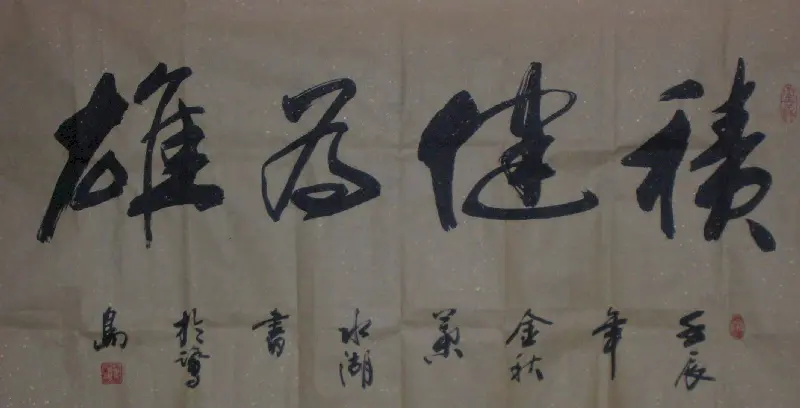 積健為雄
壬辰年金秋葉水湖書於鷺島